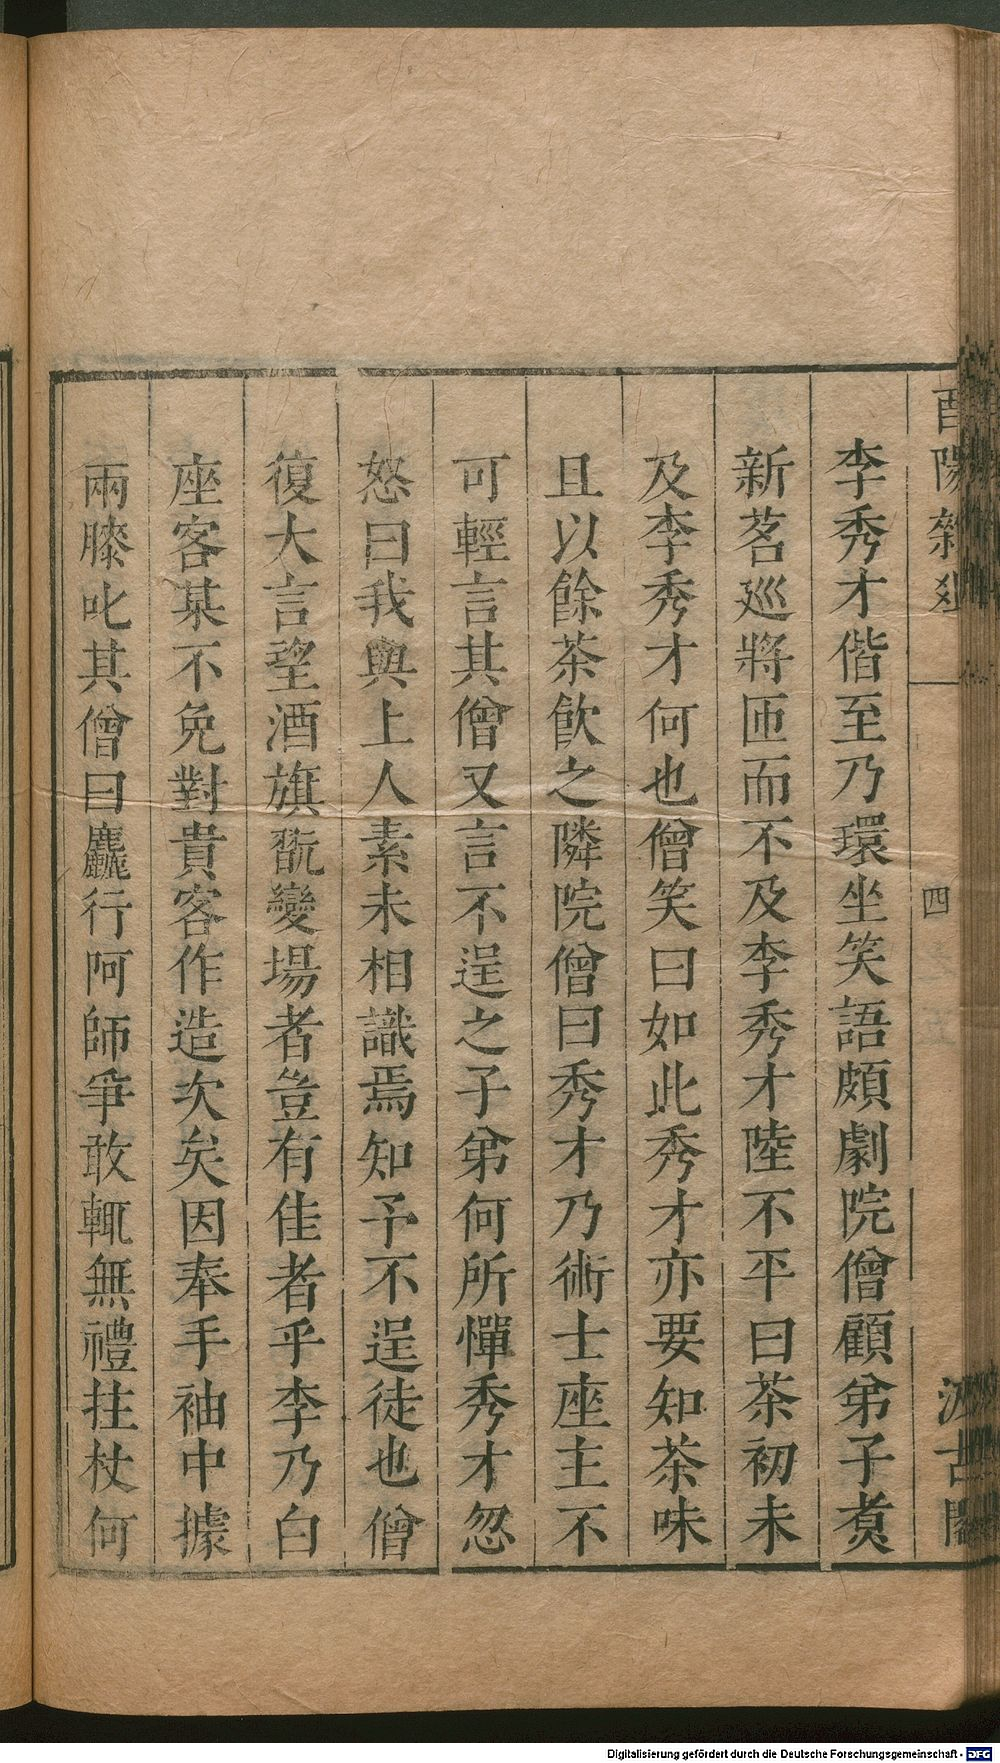 酉陽雜俎
四
汲古閣
李秀才偕至乃環坐笑語頗劇院僧顧弟子煑
新茗巡將匝而不及李秀才陸不平曰茶初未
及李秀才何也僧笑曰如此秀才亦要知茶味
且以餘茶飲之隣院僧曰秀才乃術士座主不
可輕言其僧又言不逞之子弟何所憚秀才忽
怒曰我與上人素未相識焉知予不逞徒也僧
復大言望酒旗翫變場者豈有佳者乎李乃白
座客某不免對貴客作造次矣因奉手袖中據
兩膝叱其僧曰麤行阿師爭敢輒無禮拄杖何
Digitalisierung gefördert durch die Deutsche Forschungsgemeinschaft - DFG